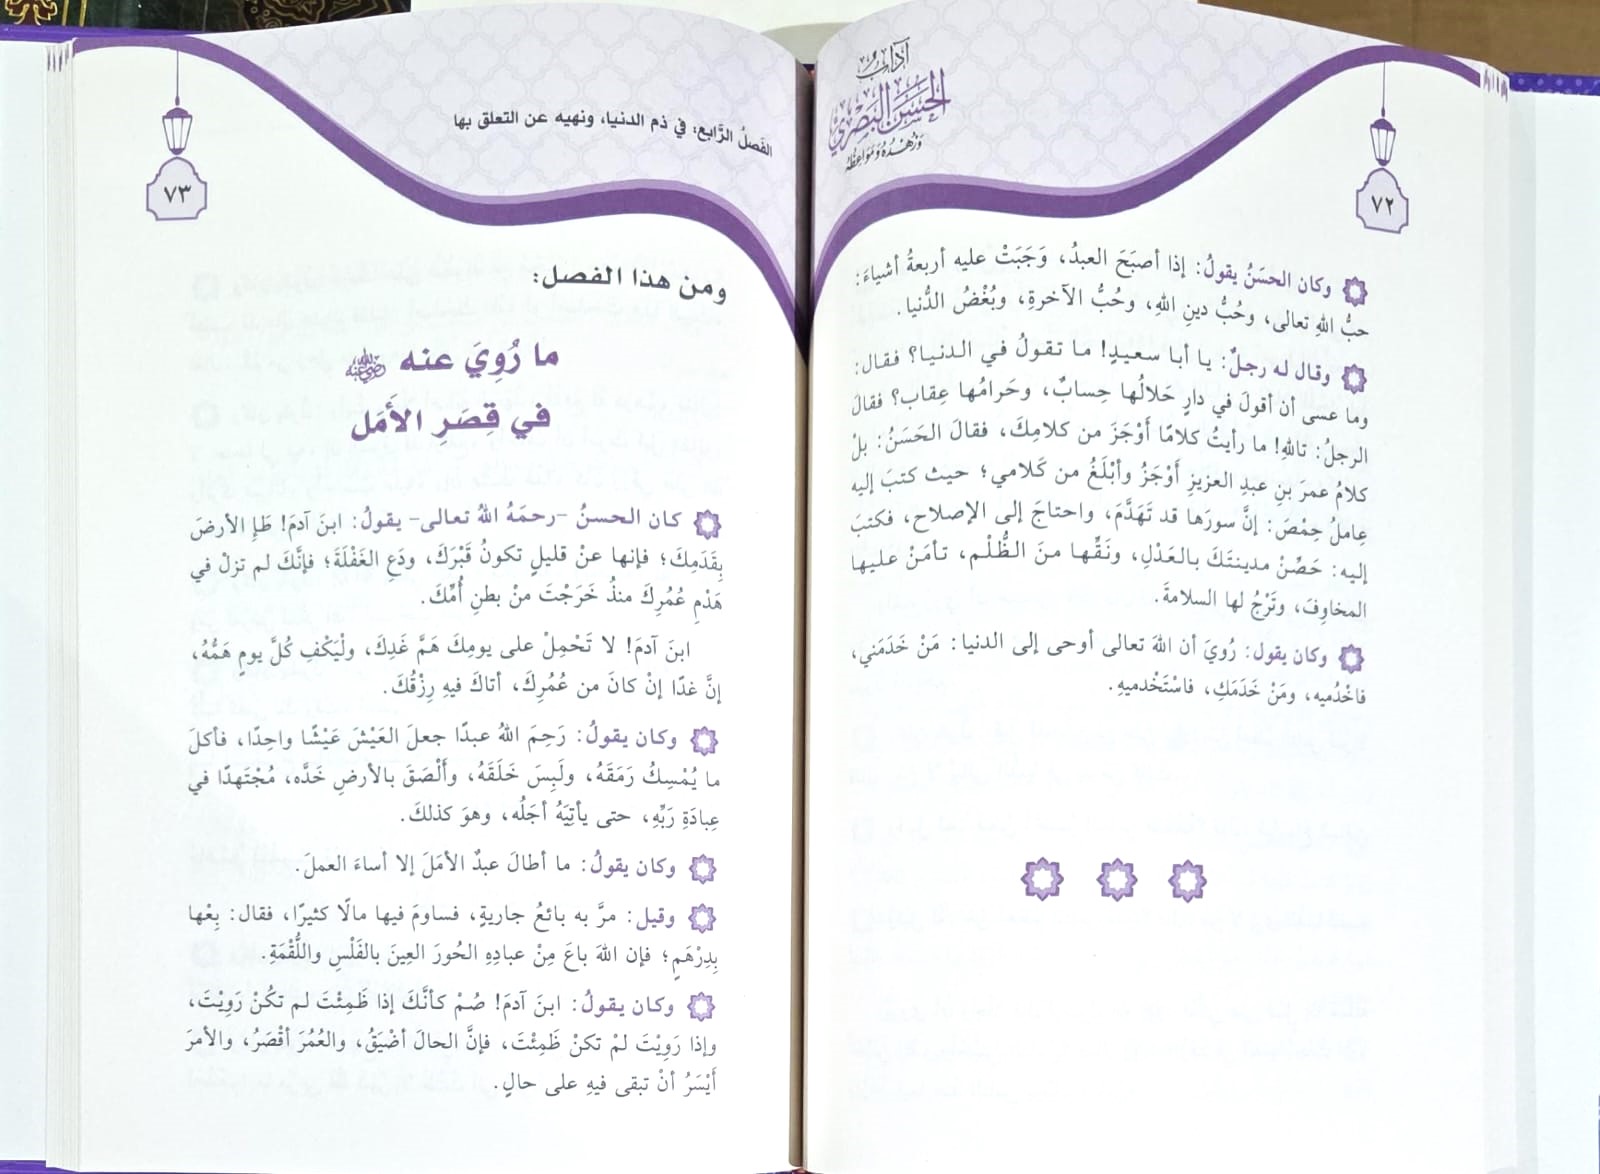 آداب
الحَسَن البَصْري
وَزُهْدُهُ وَمَوَاعِظُهُ
٧٢
وكان الحسَنُ يقولُ: إذا أصبَحَ العبدُ، وَجَبَتْ عليه أربعةُ أشياءَ:
حبُّ اللهِ تعالى، وحُبُّ دينِ اللهِ، وحُبُّ الآخرةِ، وبُغْضُ الدُّنيا.
وقال له رجلٌ: يا أبا سعيدٍ! ما تقولُ في الدنيا؟ فقال:
وما عسى أن أقولَ في دارٍ حَلالُها حِسابٌ، وحَرامُها عِقاب؟ فقالَ
الرجلُ: تاللهِ! ما رأيتُ كلامًا أوْجَزَ من كلامِكَ، فقالَ الحَسَنُ: بلْ
كلامُ عمرَ بنِ عبدِ العزيزِ أوْجَزُ وأبْلَغُ من كَلامي؛ حيث كتبَ إليه
عامِلُ حِمْصَ: إنَّ سورَها قد تَهَدَّمَ، واحتاجَ إلى الإصلاح، فكتبَ
إليه: حَصِّنْ مدينتَكَ بالعَدْلِ، ونَقِّها منَ الظُّلْم، تأمَنْ عليها
المخاوِفَ، وتَرْجُ لها السلامةَ.
وكان يقول: رُوِيَ أن اللهَ تعالى أوحى إلى الدنيا: مَنْ خَدَمَني،
فاخْدُميه، ومَنْ خَدَمَكِ، فاسْتَخْدميهِ.
الفَصلُ الرَّابع: في ذم الدنيا، ونهيه عن التعلق بها
٧٣
ومن هذا الفصل:
ما رُوِيَ عنه رضي الله عنه
في قِصَرِ الأَمَل
كان الحسنُ -رحمَهُ اللهُ تعالى- يقولُ: ابنَ آدمَ! طَإِ الأرضَ
بِقَدَمِكَ؛ فإنها عنْ قليلٍ تكونُ قَبْرَكَ، ودَعِ الغَفْلَةَ؛ فإنَّكَ لم تزلْ في
هَدْمِ عُمُرِكَ منذُ خَرَجْتَ منْ بطنِ أُمِّكَ.
ابنَ آدمَ! لا تَحْمِلْ على يومِكَ هَمَّ غَدِكَ، ولْيَكْفِ كُلَّ يومٍ هَمُّهُ،
إنَّ غدًا إنْ كانَ من عُمُرِكَ، أتاكَ فيهِ رِزْقُكَ.
وكان يقولُ: رَحِمَ اللهُ عبدًا جعلَ العَيْشَ عَيْشًا واحِدًا، فأكلَ
ما يُمْسِكُ رَمَقَهُ، ولَبِسَ خَلَقَهُ، وأَلْصَقَ بالأرضِ خَدَّه، مُجْتَهدًا في
عِبادَةِ رَبِّهِ، حتى يأتِيَهُ أجَلُه، وهوَ كذلكَ.
وكان يقولُ: ما أطالَ عبدٌ الأمَلَ إلا أساءَ العملَ.
وقيل: مرَّ به بائعُ جاريةٍ، فساومَ فيها مالًا كثيرًا، فقال: بِعْها
بِدِرْهَمٍ؛ فإن اللهَ باعَ مِنْ عبادِهِ الحُورَ العِينَ بالفَلْسِ واللُّقْمَةِ.
وكان يقولُ: ابنَ آدمَ! صُمْ كأنَّكَ إذا ظَمِئْتَ لم تكُنْ رَوِيْتَ،
وإذا رَوِيْتَ لمْ تكنْ ظَمِئْتَ، فإنَّ الحالَ أضْيَقُ، والعُمُرَ أقْصَرُ، والأمرَ
أيْسَرُ أنْ تبقى فيهِ على حالٍ.